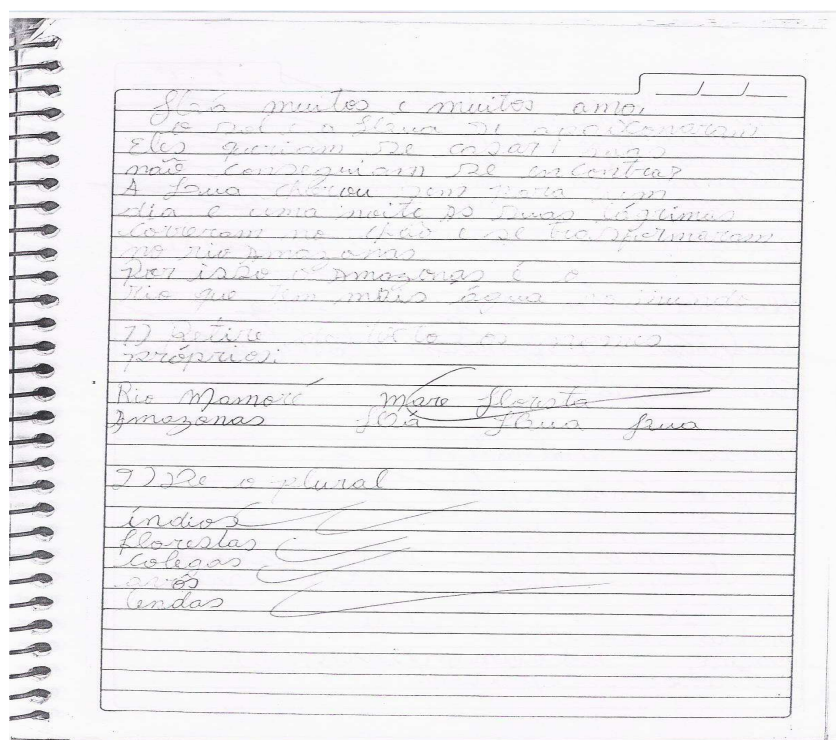 Há muitos e muitos ano,
o sol e a Lua se apaixonaram
Eles queriam se casar! mas
não conseguiam se encontrar
A Lua chorou sem para um
dia e uma noite as suas lágrimas
correram no chão e se trasformaram
no rio Amazonas
por isso o Amazonas é o
rio que tem mais água no mundo
1) Retire do texto os nomes
próprios:
Rio Mamoré Mare floresta
Amazonas Há Lua Lua
2) De o plural
índios
florestas
colegas
avós
lendas